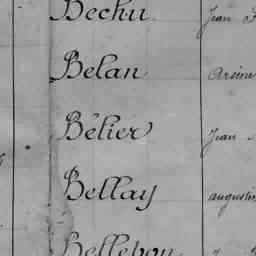 Bechu Jean
Belan Arsène
Bélier Jean
Bellay augustin
Bellebon